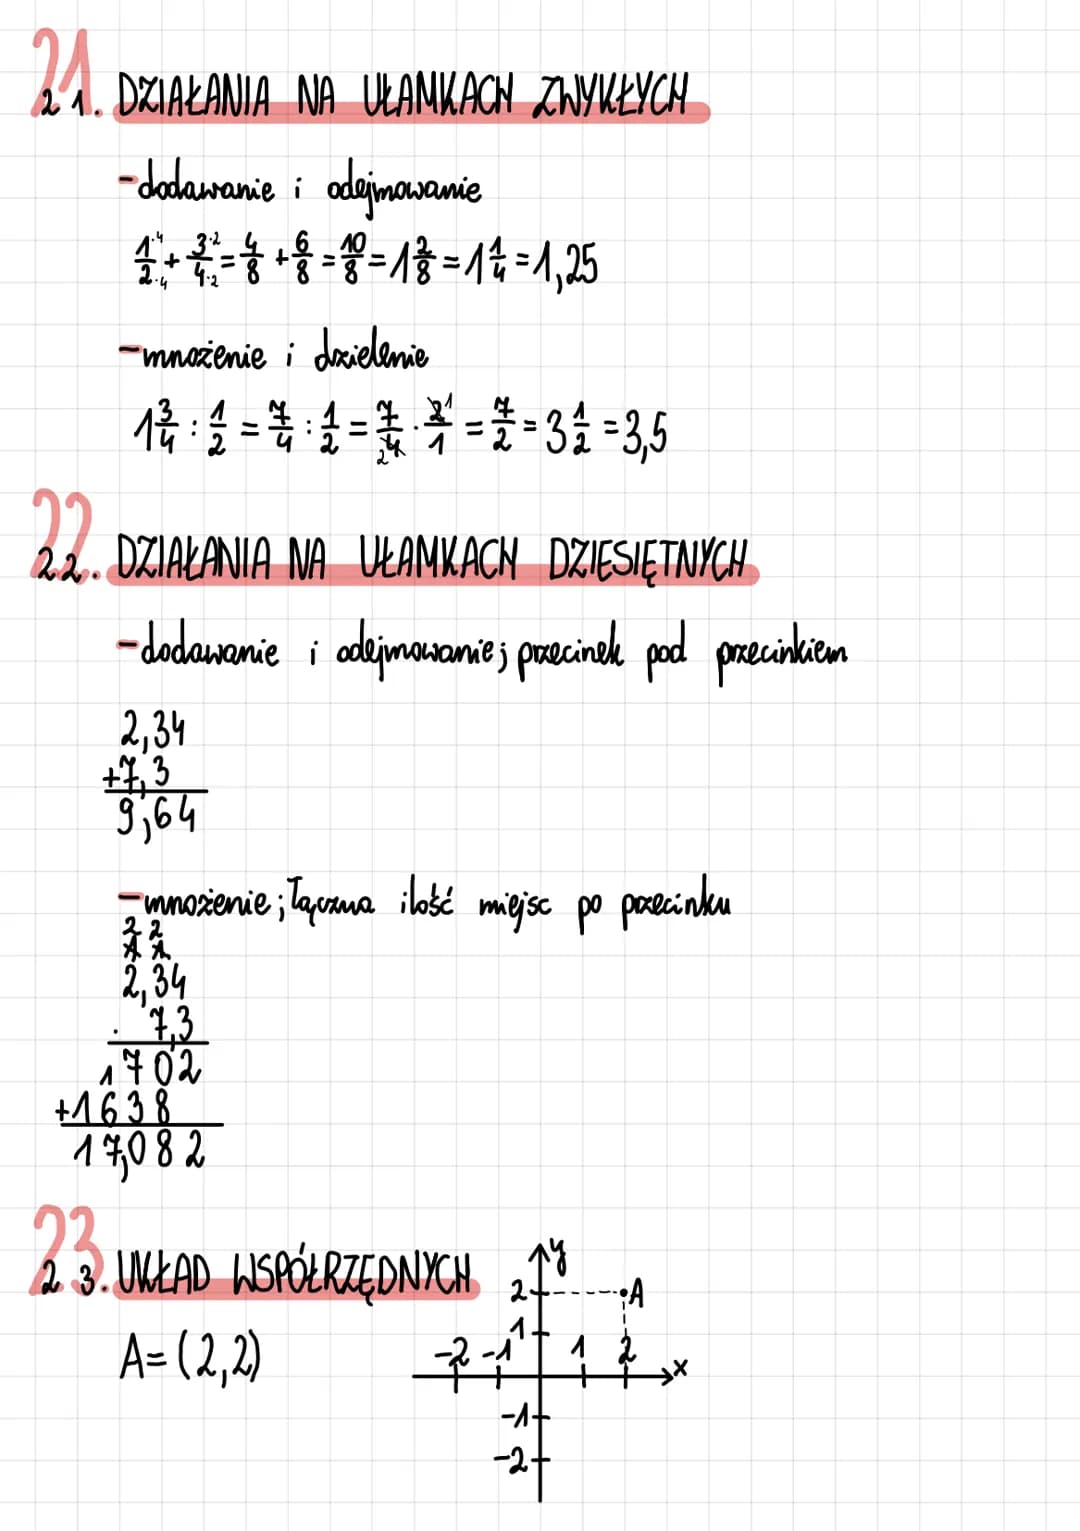 21. DZIAŁANIA NA UŁAMKACH ZWYKŁYCH
-dodawanie i odejmowanie
1·4/2·4 + 3·2/4·2 = 4/8 + 6/8 = 10/8 = 1 2/8 = 1 1/4 = 1,25
-mnożenie i dzielenie
1 3/4 : 1/2 = 7/4 : 1/2 = 7/4 2 · 2 1/1 = 7/2 = 3 1/2 = 3,5
22. DZIAŁANIA NA UŁAMKACH DZIESIĘTNYCH
-dodawanie i odejmowanie; przecinek pod przecinkiem
2,34
+7,3
9,64
-mnożenie; łączna ilość miejsc po przecinku
2 2
1 1
2,34
· 7,3
1702
+1638
17,082
23. UKŁAD WSPÓŁRZĘDNYCH
A=(2,2)
y
2 A
1
-2 -1 1 2
x
-1
-2